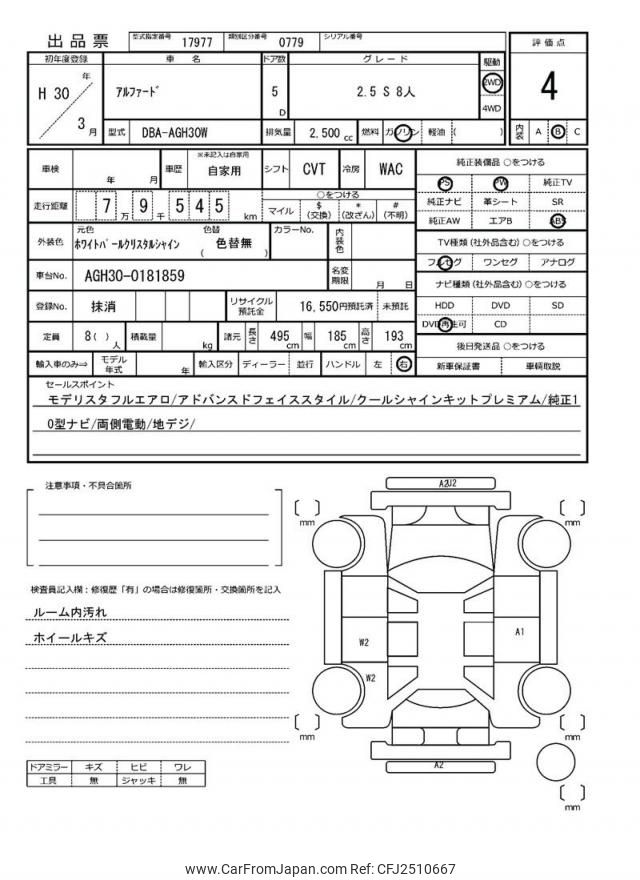 出品票 型式指定番号 17977 類別区分番号 0779 シリアル番号
初年度登録 車名 ドア数 グレード 駆動 評価点
H 30 年 3 月 アルファード 5 D 2.5 S 8人 2WD 4WD 4
型式 DBA-AGH30W 排気量 2,500 cc 燃料 ガソリン 軽油 ( ) 内装 A B C
車検 年 月 車歴 ※未記入は自家用 自家用 シフト CVT 冷房 WAC 純正装備品 ○をつける
PS PW 純正TV
走行距離 7 万 9 千 5 4 5 km ○をつける
マイル $(交換) *(改ざん) #(不明)
純正ナビ 革シート SR
純正AW エアB ABS
外装色 元色 ホワイトパールクリスタルシャイン 色替 ( 色替無 ) カラーNo. 内装色
TV種類 (社外品含む) ○をつける
フルセグ ワンセグ アナログ
車台No. AGH30-0181859 名変期限 月 日
ナビ種類 (社外品含む) ○をつける
登録No. 抹消 リサイクル預託金 16,550円預託済 未預託
HDD DVD SD
DVD再生可 CD
定員 8( ) 人 積載量 kg 諸元 長さ 495 cm 幅 185 cm 高さ 193 cm
後日発送品 ○をつける
輸入車のみ⇒ モデル年式 年 輸入区分 ディーラー 並行 ハンドル 左 右 新車保証書 車輌取説
セールスポイント
モデリスタフルエアロ/アドバンスドフェイススタイル/クールシャインキットプレミアム/純正1
0型ナビ/両側電動/地デジ/
注意事項・不具合箇所
検査員記入欄：修復歴「有」の場合は修復箇所・交換箇所を記入
ルーム内汚れ
ホイールキズ
ドアミラー キズ ヒビ ワレ
工具 無 ジャッキ 無
A2U2
[ ] mm
[ ] mm
A1
W2
W2
[ ] mm
[ ] mm
A2
[ ] mm
www.CarFromJapan.com Ref: CFJ2510667